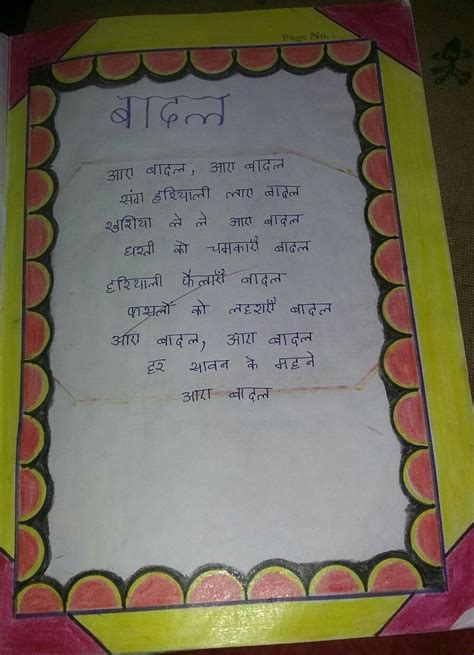 Page No. :
बादल
आए बादल, आए बादल
संग हरियाली लाए बादल
खुशिया ले ले आए बादल
धरती को चमकाएँ बादल
हरियाली फैलाएँ बादल
फासलों को लहराएँ बादल
आए बादल, आए बादल
हर सावन के महने
आए बादल